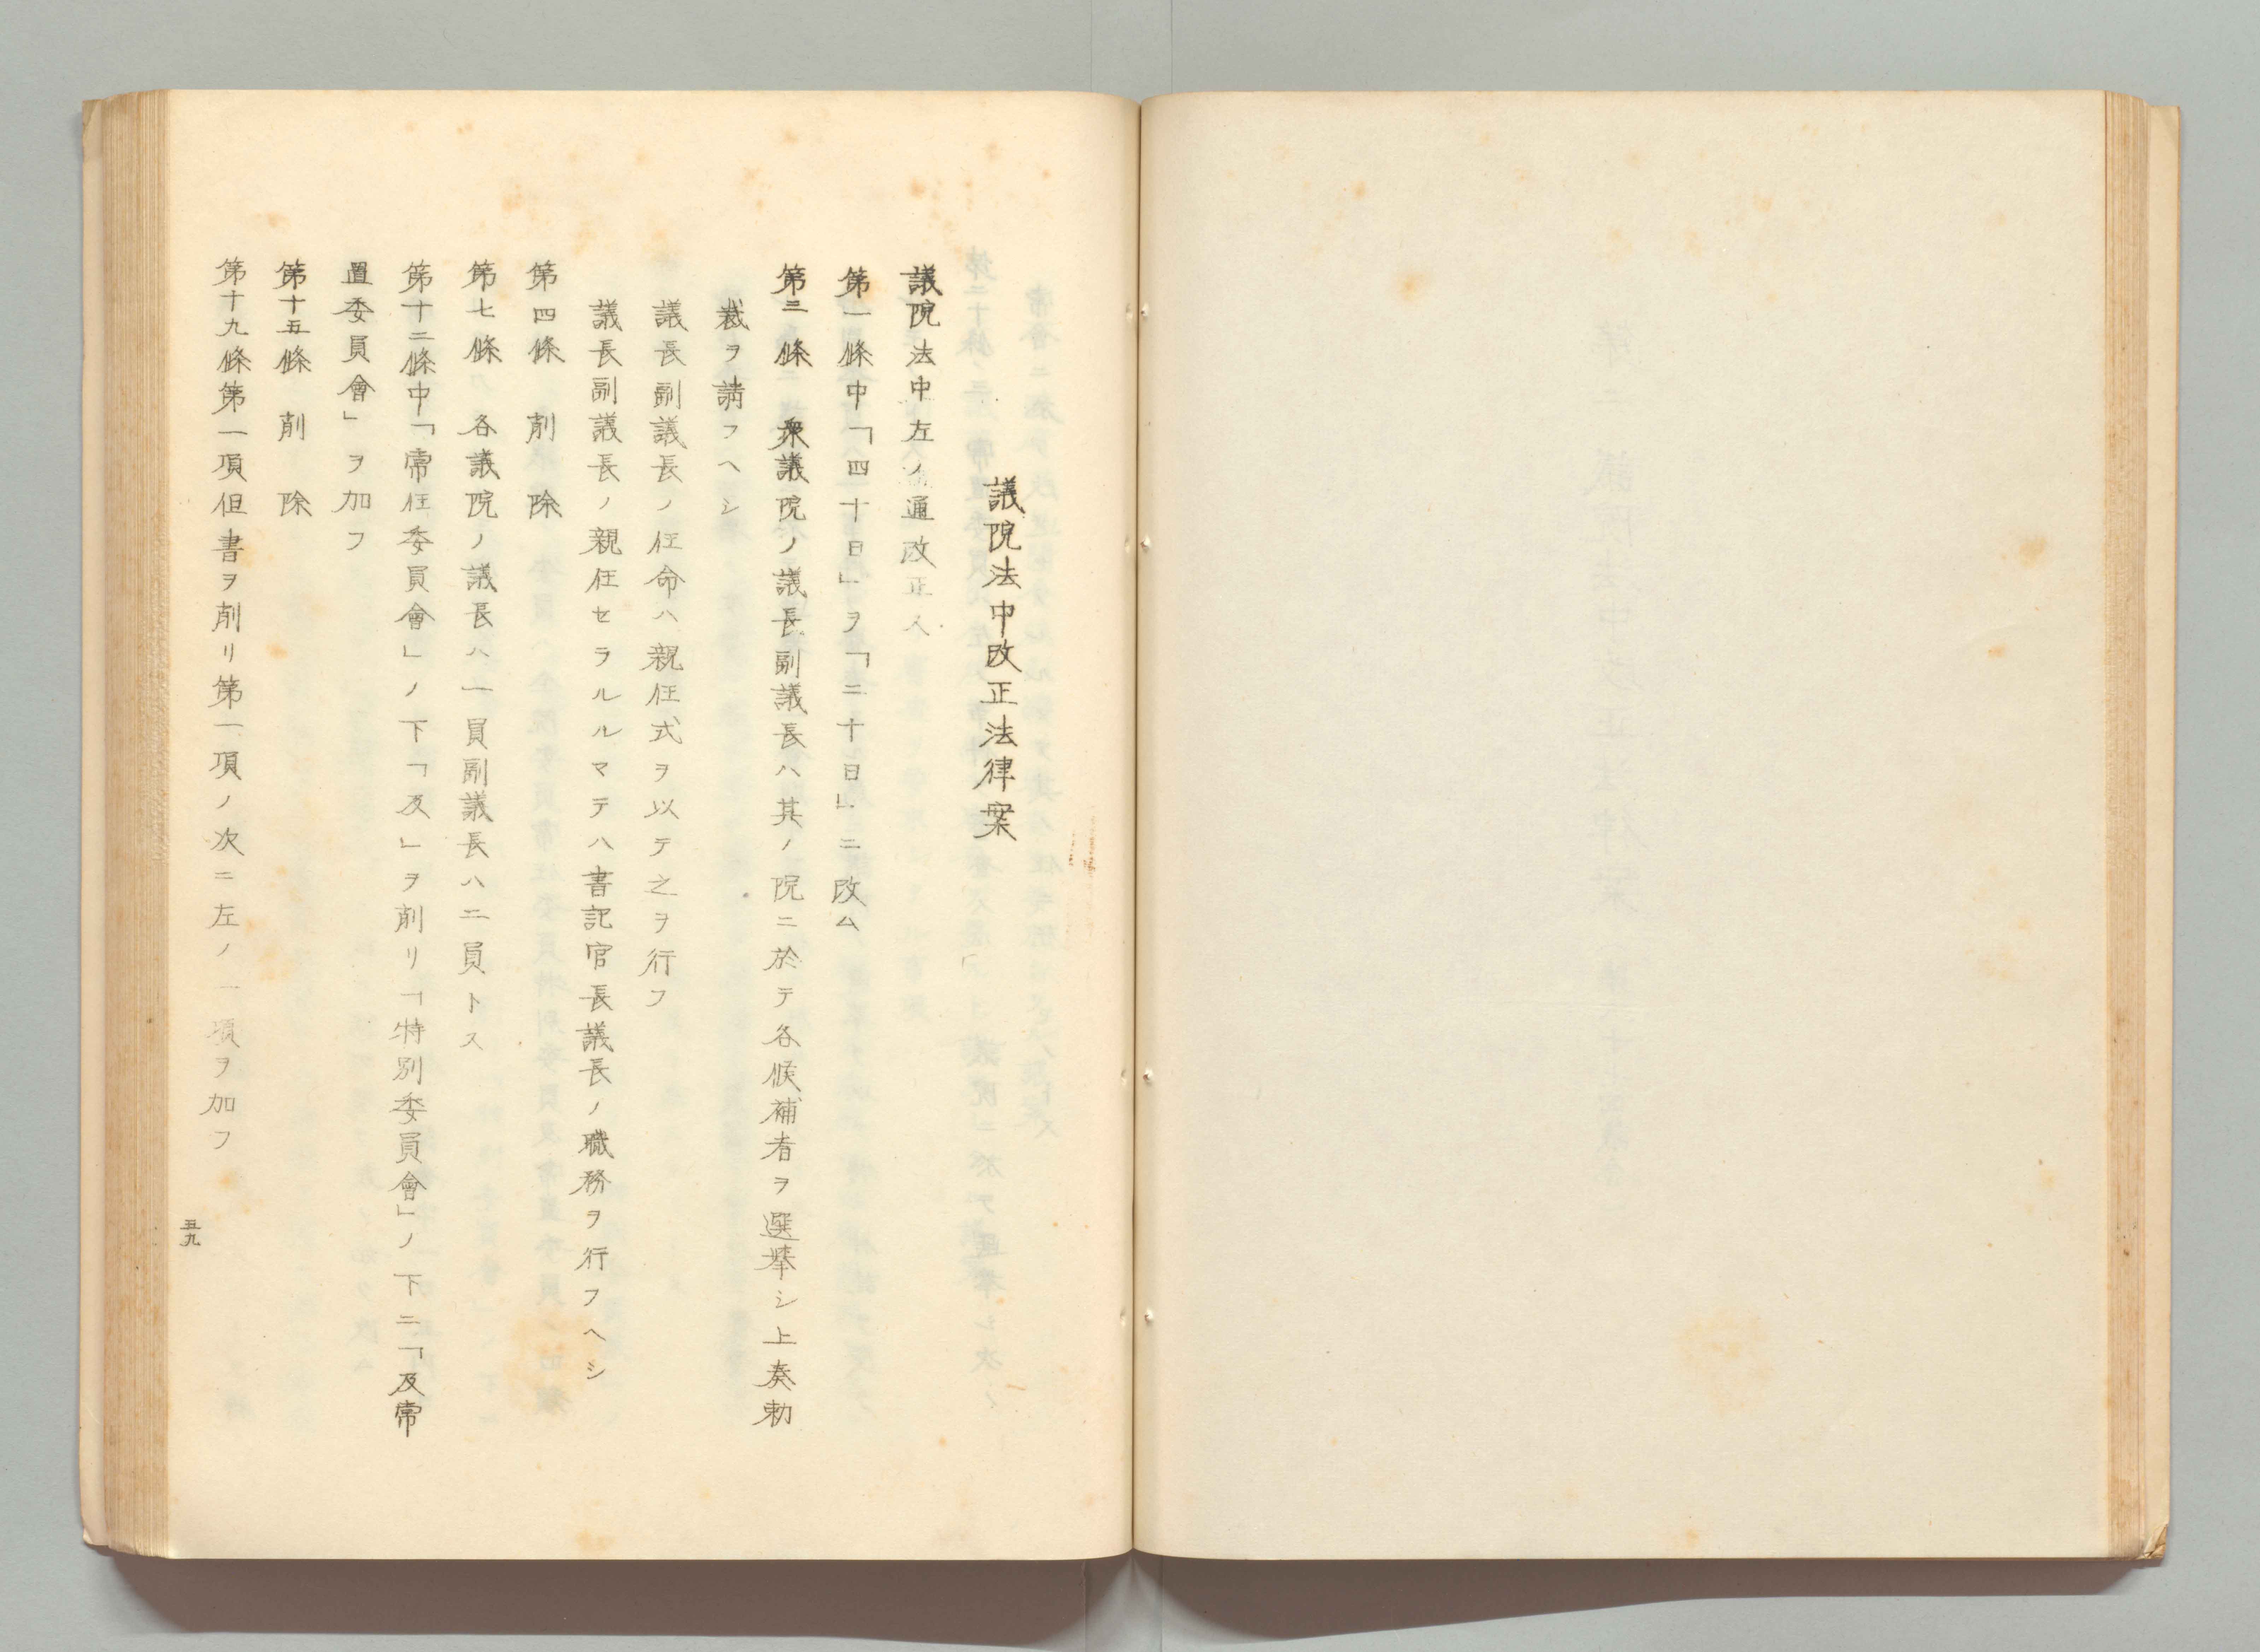 議院法中改正法律案
議院法中左ノ通改正ス
第一條中「四十日」ヲ「二十日」ニ改ム
第三條　衆議院ノ議長副議長ハ其ノ院ニ於テ各候補者ヲ選擧シ上奏勅
裁ヲ請フヘシ
議長副議長ノ任命ハ親任式ヲ以テ之ヲ行フ
議長副議長ノ親任セラルルマテハ書記官長議長ノ職務ヲ行フヘシ
第四條　削除
第七條　各議院ノ議長ハ一員副議長ハ二員トス
第十二條中「常任委員會」ノ下「及」ヲ削リ「特別委員會」ノ下ニ「及常
置委員會」ヲ加フ
第十五條　削除
第十九條第一項但書ヲ削リ第一項ノ次ニ左ノ一項ヲ加フ
五九